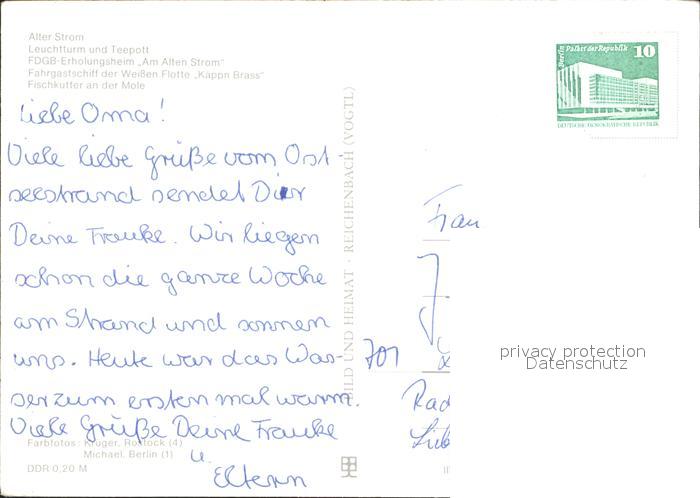 Alter Strom
Leuchtturm und Teepott
FDGB-Erholungsheim „Am Alten Strom“
Fahrgastschiff der Weißen Flotte „Käppn Brass“
Fischkutter an der Mole
Liebe Oma!
Viele liebe Grüße vom Ost-
seestrand sendet Dir
Deine Frauke. Wir liegen
schon die ganze Woche
am Strand und sonnen
uns. Heute war das Was-
ser zum ersten mal warm.
Viele Grüße Deine Frauke
u.
Eltern
Farbfotos: Krüger, Rostock (4)
Michael, Berlin (1)
DDR 0,20 M
BILD UND HEIMAT · REICHENBACH (VOGTL)
Berlin Palast der Republik 10
DEUTSCHE DEMOKRATISCHE REPUBLIK
Frau
701
Rad
Lieb
privacy protection
Datenschutz